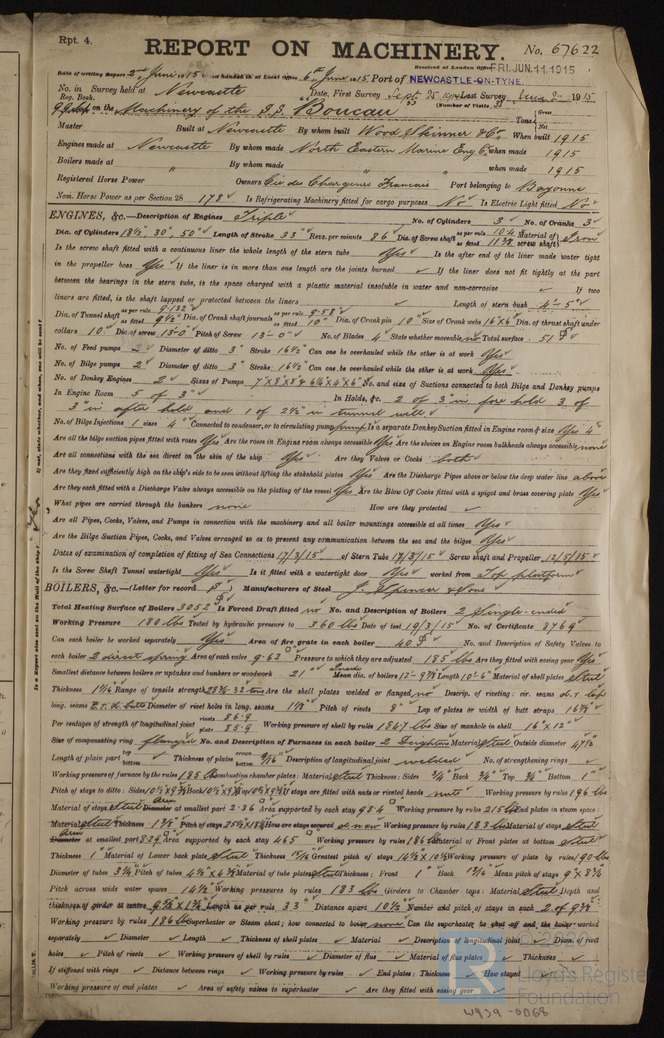 Rpt. 4.
REPORT ON MACHINERY. No. 67622
Received at London Office FRI. JUN. 11. 1915
Date of writing Report 2nd June 1915 When handed in at Local Office 6th June 1915 Port of NEWCASTLE-ON-TYNE
No. in Survey held at Newcastle Date, First Survey Sept 25 1914 Last Survey June 2 1915
Reg. Book.
on the Machinery of the S.S. "Boucau" (Number of Visits 33)
Tons Gross Net
Master Built at Newcastle By whom built Wood Skinner & Co. When built 1915
Engines made at Newcastle By whom made North Eastern Marine Eng Co. when made 1915
Boilers made at " By whom made " when made 1915
Registered Horse Power Owners Cie des Chargeurs Francais Port belonging to Bayonne
Nom. Horse Power as per Section 28 178 Is Refrigerating Machinery fitted for cargo purposes No Is Electric Light fitted No
ENGINES, &c.—Description of Engines Triple No. of Cylinders 3 No. of Cranks 3
Dia. of Cylinders 18½ 30 50" Length of Stroke 33" Revs. per minute 86 Dia. of Screw shaft as per rule 10.4 as fitted 11⅜ Material of screw shaft Iron
Is the screw shaft fitted with a continuous liner the whole length of the stern tube Yes Is the after end of the liner made water tight
in the propeller boss Yes If the liner is in more than one length are the joints burned ✓ If the liner does not fit tightly at the part
between the bearings in the stern tube, is the space charged with a plastic material insoluble in water and non-corrosive ✓ If two
liners are fitted, is the shaft lapped or protected between the liners ✓ Length of stern bush 4-5"
Dia. of Tunnel shaft as per rule 9.132 as fitted 9½" Dia. of Crank shaft journals as per rule 9.58 as fitted 10" Dia. of Crank pin 10" Size of Crank webs 16x6 Dia. of thrust shaft under
collars 10" Dia. of screw 13-0 Pitch of Screw 13-0" No. of Blades 4 State whether moveable no Total surface 51
No. of Feed pumps 2 Diameter of ditto 3" Stroke 16½" Can one be overhauled while the other is at work Yes
No. of Bilge pumps 2 Diameter of ditto 3" Stroke 16½" Can one be overhauled while the other is at work Yes
No. of Donkey Engines 2 Sizes of Pumps 7"x8"x8 & 6¼x4"x6" No. and size of Suctions connected to both Bilge and Donkey pumps
In Engine Room 5 of 3" In Holds, &c. 2 of 3" in fore hold 3 of
3" in after hold and 1 of 2½" in tunnel well
No. of Bilge Injections 1 sizes 4" Connected to condenser, or to circulating pump pump Is a separate Donkey Suction fitted in Engine room & size Yes 4"
Are all the bilge suction pipes fitted with roses Yes Are the roses in Engine room always accessible Yes Are the sluices on Engine room bulkheads always accessible none
Are all connections with the sea direct on the skin of the ship Yes Are they Valves or Cocks both
Are they fixed sufficiently high on the ship's side to be seen without lifting the stokehold plates Yes Are the Discharge Pipes above or below the deep water line above
Are they each fitted with a Discharge Valve always accessible on the plating of the vessel Yes Are the Blow Off Cocks fitted with a spigot and brass covering plate Yes
What pipes are carried through the bunkers none How are they protected ✓
Are all Pipes, Cocks, Valves, and Pumps in connection with the machinery and all boiler mountings accessible at all times Yes
Are the Bilge Suction Pipes, Cocks, and Valves arranged so as to prevent any communication between the sea and the bilges Yes
Dates of examination of completion of fitting of Sea Connections 17/3/15 of Stern Tube 17/3/15 Screw shaft and Propeller 12/5/15
Is the Screw Shaft Tunnel watertight Yes Is it fitted with a watertight door Yes worked from Top platform
BOILERS, &c.—(Letter for record S) Manufacturers of Steel J. Spencer & Sons
Total Heating Surface of Boilers 3052 Is Forced Draft fitted no No. and Description of Boilers 2 Single-ended
Working Pressure 180 lbs Tested by hydraulic pressure to 360 lbs Date of test 19/3/15 No. of Certificate 8769
Can each boiler be worked separately Yes Area of fire grate in each boiler 40 No. and Description of Safety Valves to
each boiler 2 direct spring Area of each valve 9.62 Pressure to which they are adjusted 185 lbs Are they fitted with easing gear Yes
Smallest distance between boilers or uptakes and bunkers or woodwork 21" Mean dia. of boilers 12-9⅞ Length 10-6" Material of shell plates Steel
Thickness 1 1/16 Range of tensile strength 28½-32 tons Are the shell plates welded or flanged no Descrip. of riveting: cir. seams d.r. lap
long. seams t.r.d. butts Diameter of rivet holes in long. seams 1⅛" Pitch of rivets 8" Lap of plates or width of butt straps 16¾"
Per centages of strength of longitudinal joint rivets 86.9 plate 85.9 Working pressure of shell by rules 184.7 lbs Size of manhole in shell 16"x12"
Size of compensating ring flanged No. and Description of Furnaces in each boiler 2 Deightons Material Steel Outside diameter 47½"
Length of plain part top bottom Thickness of plates crown bottom 9/16" Description of longitudinal joint welded No. of strengthening rings ✓
Working pressure of furnace by the rules 185 lbs Combustion chamber plates: Material Steel Thickness: Sides ¾" Back ¾" Top ¾" Bottom 1"
Pitch of stays to ditto: If stays are fitted with nuts or riveted heads nuts Working pressure by rules 196 lbs
Material of stays Steel Area at smallest part 2.36 Area supported by each stay 98.4 Working pressure by rules 215 lbs End plates in steam space:
Material Steel Thickness 1¼" Pitch of stays How are stays secured d.n & w Working pressure by rules 183 lbs Material of stays Steel
Area at smallest part 8.29 Area supported by each stay 465 Working pressure by rules 186 lbs Material of Front plates at bottom Steel
Thickness 1" Material of Lower back plate Steel Thickness 15/16 Greatest pitch of stays 14½x10½ Working pressure of plate by rules 190 lbs
Diameter of tubes 3¼" Pitch of tubes 4½x4½ Material of tube plates Steel Thickness: Front 1" Back 13/16" Mean pitch of stays 9"x8⅞
Pitch across wide water spaces 14½" Working pressures by rules 183 lbs Girders to Chamber tops: Material Steel Depth and
thickness of girder at centre Length as per rule 33" Distance apart 10½" Number and pitch of stays in each 2 of 9⅞
Working pressure by rules 186 lbs Superheater or Steam chest; how connected to boiler none Can the superheater be shut off and the boiler worked
separately ✓ Diameter ✓ Length ✓ Thickness of shell plates ✓ Material ✓ Description of longitudinal joint ✓ Diam. of rivet
holes ✓ Pitch of rivets ✓ Working pressure of shell by rules ✓ Diameter of flue ✓ Material of flue plates ✓ Thickness ✓
If stiffened with rings ✓ Distance between rings ✓ Working pressure by rules ✓ End plates: Thickness ✓ How stayed ✓
Working pressure of end plates ✓ Area of safety valves to superheater ✓ Are they fitted with easing gear ✓
© 2021
Lloyd's Register
Foundation
W939-0068